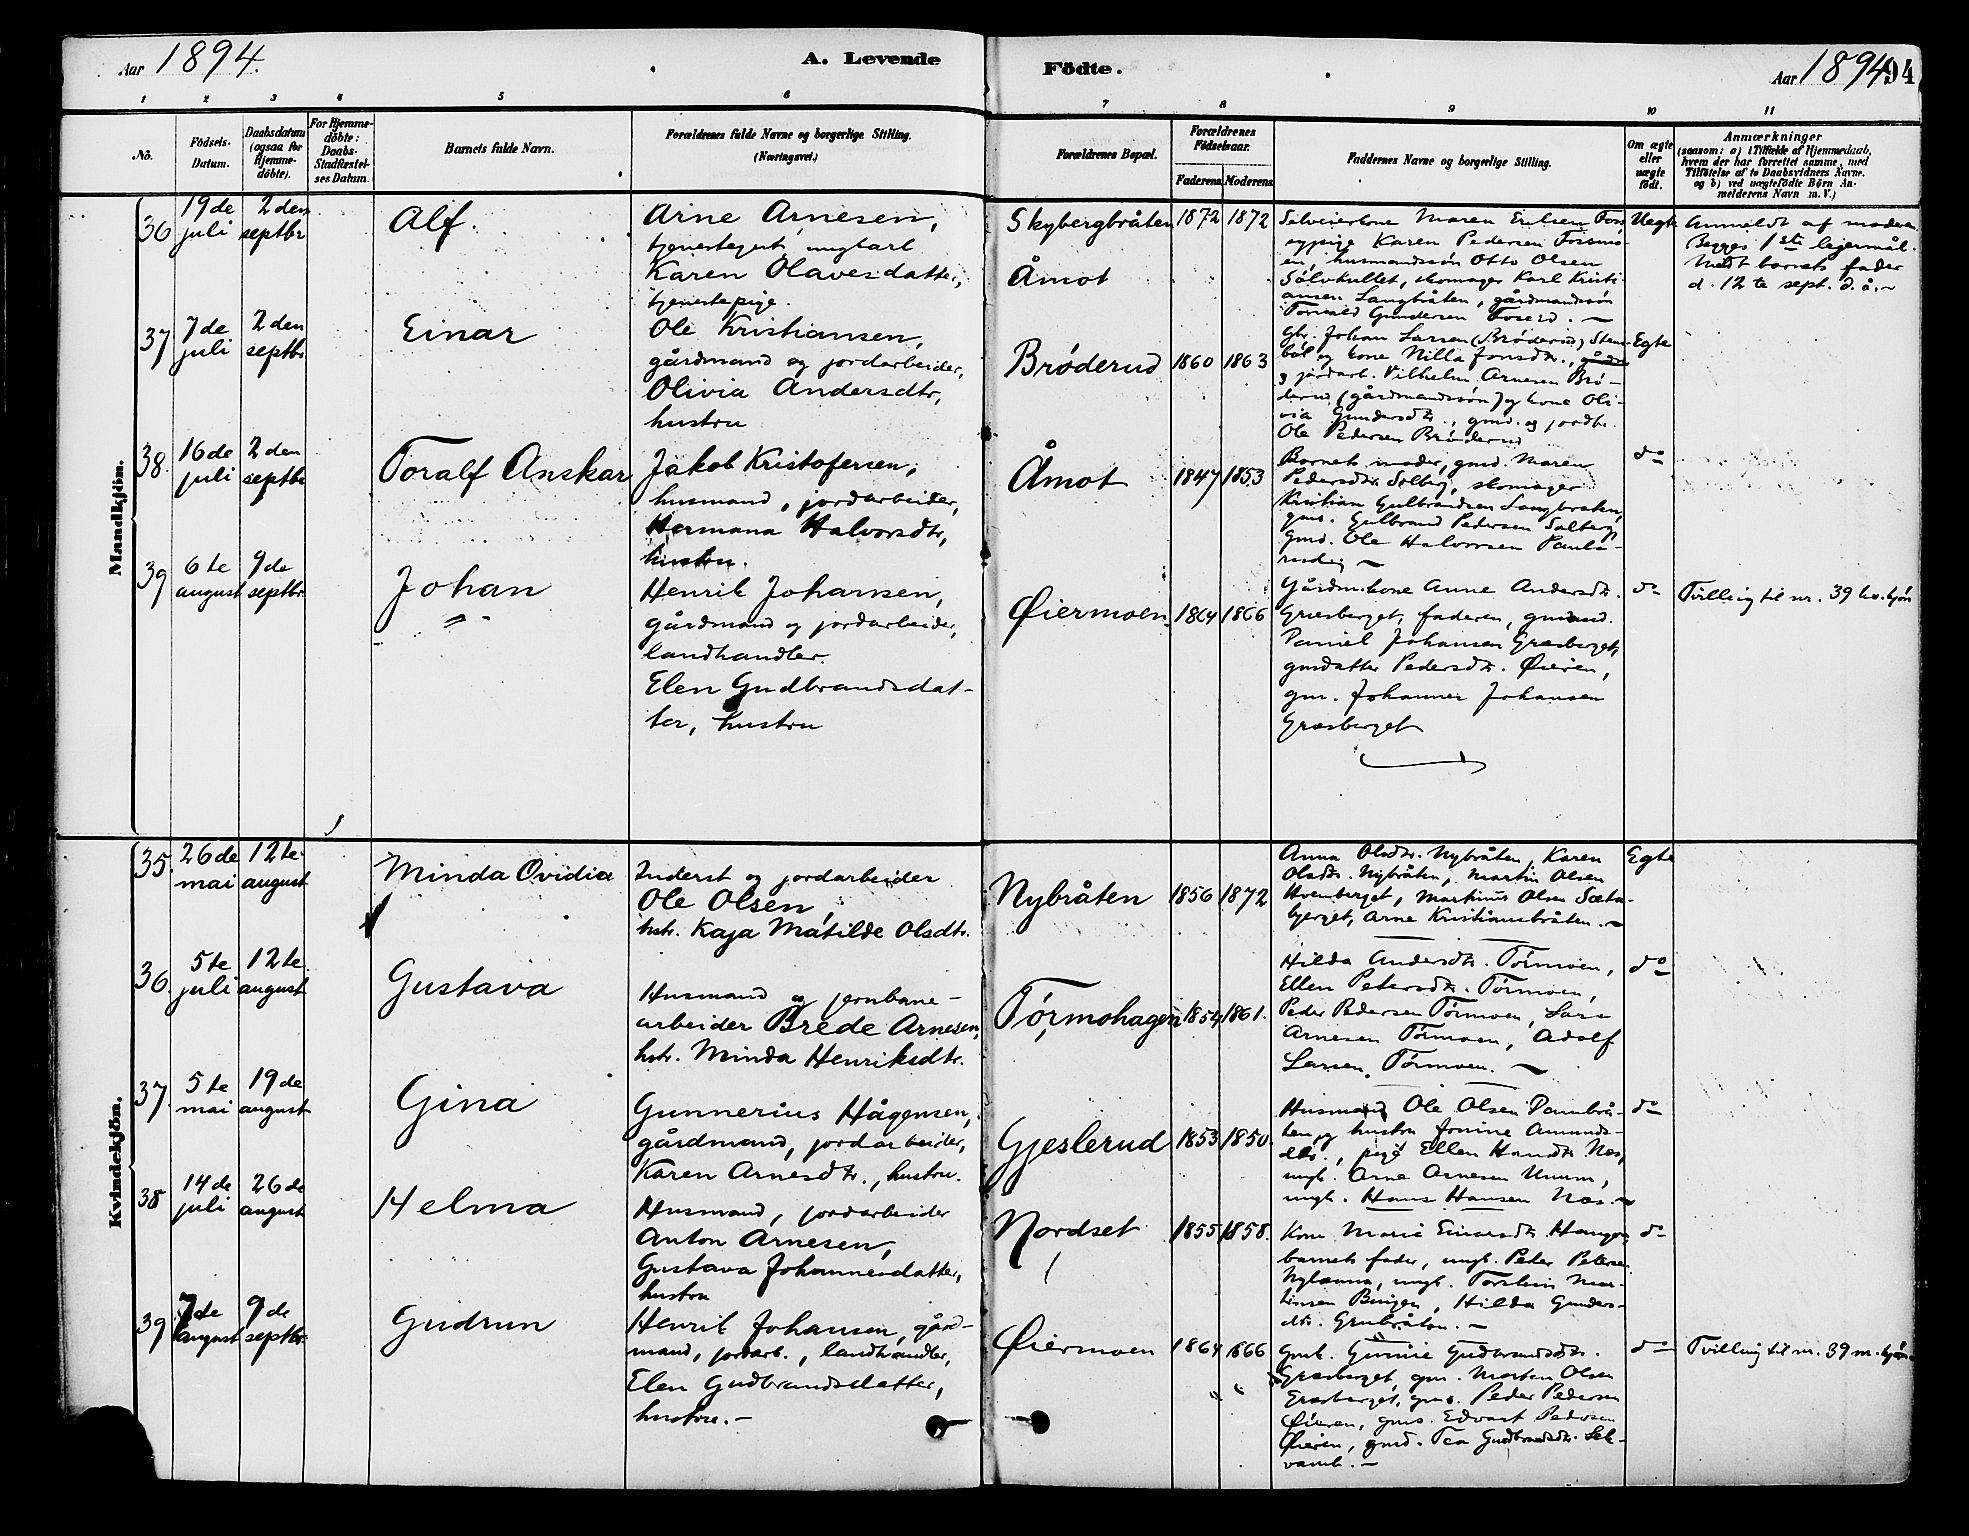 Aar 1894.
A. Levende
Födte.
Aar 1894
94
1 2 3 4 5 6 7 8 9 10 11
No.
Födsels-
Datum.
Daabsdatum
(ogsaa for
Hjemme-
döbte).
For Hjemme-
döbte:
Daabs-
Stadfæstel-
ses Datum.
Barnets fulde Navn.
Forældrenes fulde Navne og borgerlige Stilling.
(Næringsvei.)
Forældrenes Bopæl.
Forældrenes
Födselsaar.
Faderens Moderens
Faddernes Navne og borgerlige Stilling.
Om ægte
eller
uægte
födt.
Anmærkninger
(saasom: a) i Tilfælde af Hjemmedaab,
hvem der har forrettet samme, med
Tilföielse af to Daabsvidners Navne,
og b) ved uægtefödte Börn An-
melderens Navn m. V.)
Mandkjön.
36
19de
juli
2den
septbr
Alf.
Arne Arnesen,
tjenestegut, ungkarl
Karen Olavesdatter,
tjenestepige.
Skybergbråten
Åmot
1872 1872
Selveierkone Maren Erilsen Foss,
pige Karen Pedersen Fossmo-
en, husmandssön Otto Olsen
Sölvhullet, skomager Karl Kristi-
ansen Langbråten, gårdmandssön
Gundersen Fosserd. –
Uegte
Anmeldt af moderen
Begges 1ste lejermål.
barnets fader
d. 12te sept. d. å. –
37
7de
juli
2den
septbr.
Einar
Ole Kristiansen,
gårdmand og jordarbeider,
Olivia Andersdtr,
hustru
Brøderud
1860 1863
gbr. Johan Larsen (Brøderud) Sten-
böl og kone Nilla Jonsdtr.,
jordarb. Vilhelm Arnesen Brö-
derud (gårdmandssøn) og kone Oli-
via Gundersdtr., gmd. og jordbr.
Ole Pedersen Brøderud
Egte
38
16de
juli
2den
septbr
Toralf Anskar
Jakob Kristofersen,
husmand, jordarbeider,
Hermana Halvorsdtr,
hustru.
Åmot
1847 1853
Barnets moder, gmd. Maren
Pedersdtr. Solberg, skomager
Kristian Gulbrandsen Langbraten,
gms. Gulbrand Pedersen Solberg,
gmd. Ole Halvorsen Pauls-
rudeig –
do
39
6te
august
9de
septbr.
Johan
Henrik Johansen,
gårdmand og jordarbeider,
landhandler.
Elen Gudbrandsdat-
ter, hustru
Øiermoen
1864 1866
Gårdm.kone Anne Andersdtr.
Græsberget, faderen, gmand.
Daniel Johansen Græsberget,
gmdatter Pedersdtr. Øieren,
gm. Johannes Johansen
Græsberget
do
Tvilling til nr. 39 kv. kjön
Kvindekjön.
35.
26de
mai
12te
august
Minda Ovidia
Inderst og jordarbeider
Ole Olsen,
hstr. Kaja Matilde Olsdtr.
Nybråten
1856 1872
Anna Olsdtr. Nybråten, Karen
Olsdtr. Nybråten, Martin Olsen
Hvemberget, Martinus Olsen Sæta-
berget, Arne Kristiansbråten. –
Egte
36.
5te
juli
12te
august
Gustava
Husmand og jernbane-
arbeider Brede Arnesen,
hstr. Minda Henriksdtr.
Törmohagen
1854 1861.
Hilda Andersdtr. Törmoen,
Ellen Petersdtr. Törmoen,
Peder Pedersen Törmoen, Lars
Arnesen Törmoen, Adolf
Larsen Törmoen. –
do
37.
5te
mai
19de
august
Gina
Gunnerius Hågensen,
gårdmand, jordarbeider,
Karen Arnesdtr., hustru.
Gjeslerud
1853 1850.
Husmand Ole Olsen Dambrå-
ten og hustru Jonine Amunds-
dtr., pige Ellen Hansdtr. Næs,
ungk. Arne Arnesen Unum,
ungk. Hans Hansen Næs. –
do
38
14de
juli
26de
august
Helma
Husmand, jordarbeider
Anton Arnesen,
Gustava Johannesdatter,
hustru
Nordset
1855 1858.
Kone Marie Einarsdtr. Haugen,
barnets fader, ungk. Peder Petersen
Nylænna, ungk. Torstein Mar-
tinsen Bingen, Hilda Gunders-
dtr. Grubråten. –
do
39
7de
august
9de
septbr.
Gudrun
Henrik Johansen, gård-
mand, jordarb., landhandler,
Elen Gudbrandsdatter,
hustru. –
Øiermoen
1864 1866
Gmk. Gunnie Gudbrandsdtr.
Græsberget, gm. Morten Olsen
Græsberget, gms. Peder Pedersen
Øieren, gms. Edvart Pedersen
Øieren, gmd. Tea Gudbrandsdtr. Sel-
vamb. –
do
Tvilling til nr. 39 m. kjön.